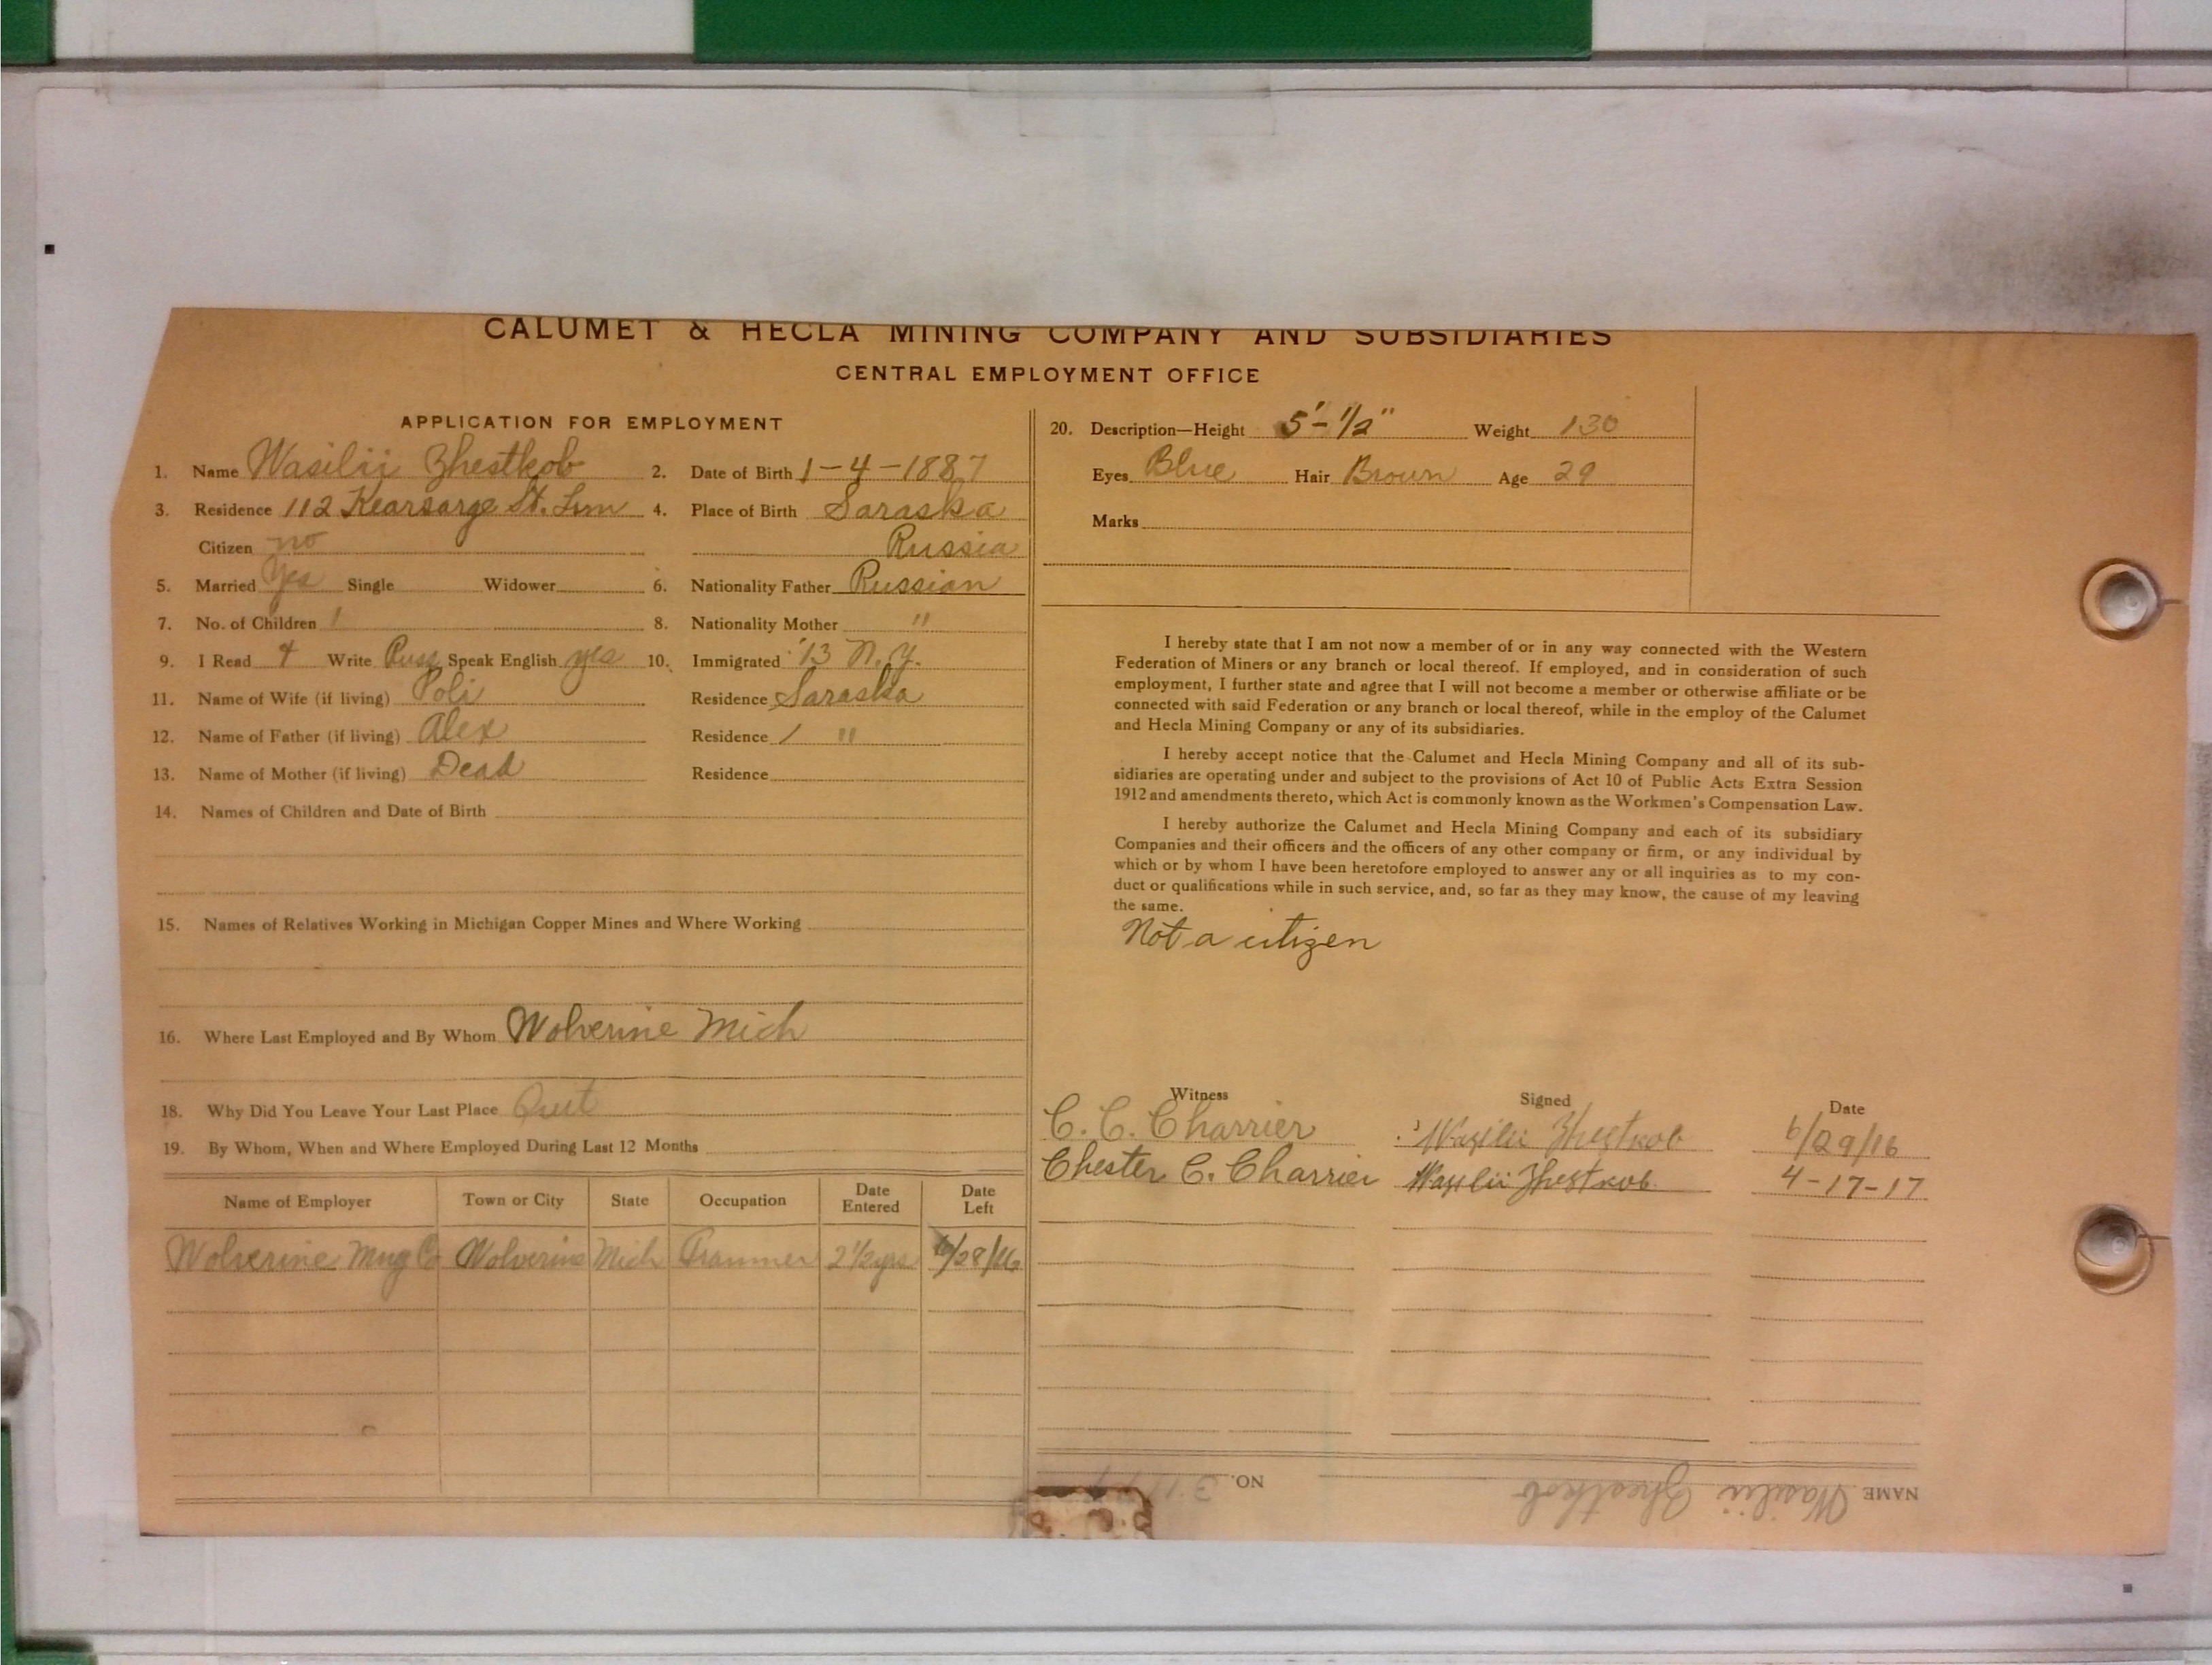 CALUMET & HECLA MINING COMPANY AND SUBSIDIARIES
CENTRAL EMPLOYMENT OFFICE
APPLICATION FOR EMPLOYMENT
1. Name Wasilii Zhestkob 2. Date of Birth 1-4-1887
3. Residence 112 Kearsarge St. Lm 4. Place of Birth Saraska
Citizen no Russia
5. Married Yes Single Widower 6. Nationality Father Russian
7. No. of Children 1 8. Nationality Mother "
9. I Read & Write Russ Speak English yes 10. Immigrated '13 N.Y.
11. Name of Wife (if living) Poli Residence Saraska
12. Name of Father (if living) Alex Residence "
13. Name of Mother (if living) Dead Residence
14. Names of Children and Date of Birth
15. Names of Relatives Working in Michigan Copper Mines and Where Working
16. Where Last Employed and By Whom Wolverine Mich
18. Why Did You Leave Your Last Place Quit
19. By Whom, When and Where Employed During Last 12 Months
Name of Employer Town or City State Occupation Date Entered Date Left
Wolverine Mng Co Wolverine Mich Trammer 2 1/2 yrs 6/28/16
20. Description—Height 5'-1/2" Weight 130
Eyes Blue Hair Brown Age 29
Marks
I hereby state that I am not now a member of or in any way connected with the Western
Federation of Miners or any branch or local thereof. If employed, and in consideration of such
employment, I further state and agree that I will not become a member or otherwise affiliate or be
connected with said Federation or any branch or local thereof, while in the employ of the Calumet
and Hecla Mining Company or any of its subsidiaries.
I hereby accept notice that the Calumet and Hecla Mining Company and all of its sub-
sidiaries are operating under and subject to the provisions of Act 10 of Public Acts Extra Session
1912 and amendments thereto, which Act is commonly known as the Workmen's Compensation Law.
I hereby authorize the Calumet and Hecla Mining Company and each of its subsidiary
Companies and their officers and the officers of any other company or firm, or any individual by
which or by whom I have been heretofore employed to answer any or all inquiries as to my con-
duct or qualifications while in such service, and, so far as they may know, the cause of my leaving
the same.
Not a citizen
Witness Signed Date
C. C. Charrier Wasilii Zhestkob 6/29/16
Chester C. Charrier Wasilii Zhestkob 4-17-17
NAME Wasilii Zhestkob NO.